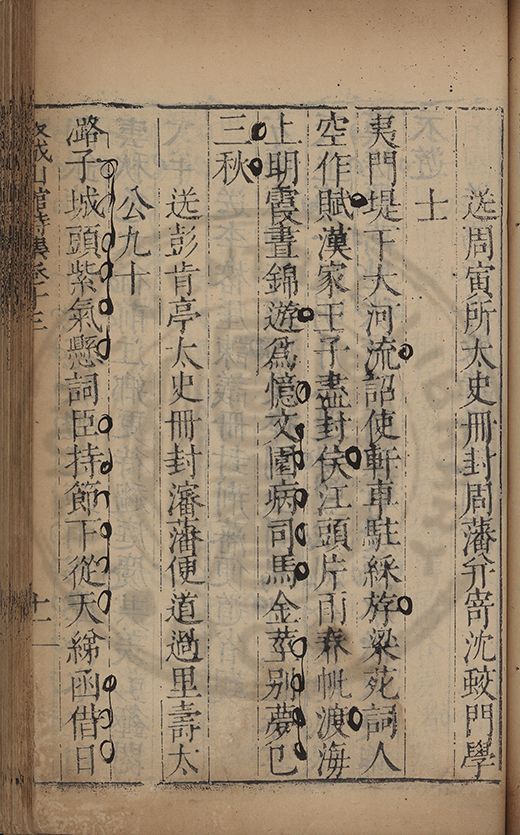 送周寅所太史冊封周藩弁寄沈蛟門學
士
夷門堤下大河流詔使軒車駐綵斿梁苑詞人
空作賦漢家王子盡封侯江頭片雨春帆渡海
上明霞晝錦遊爲憶文園病司馬金莖別夢已
三秋
送彭肯亭太史冊封瀋藩便道過里壽太
公九十
潞子城頭紫氣懸詞臣持節下從天綈函借日
山館詩集卷十三
十一